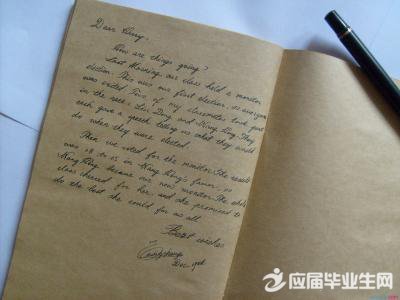 Dear
How are things going?
Last Morning our class held a monitor
election. This was our first election, so everyone
was excited. Two of my classmates took part
in the race: Lin Dong and Kang Ling. They
each gave a speech telling us what they would
do when they were elected.
Then we voted for the monitor. The result
was 28 to 15 in Kang Ling's favor, so
Kang Ling became our new monitor. The whole
class cheered for her and she promised to
do the best she could for us all.
Best wishes
应届毕业生网